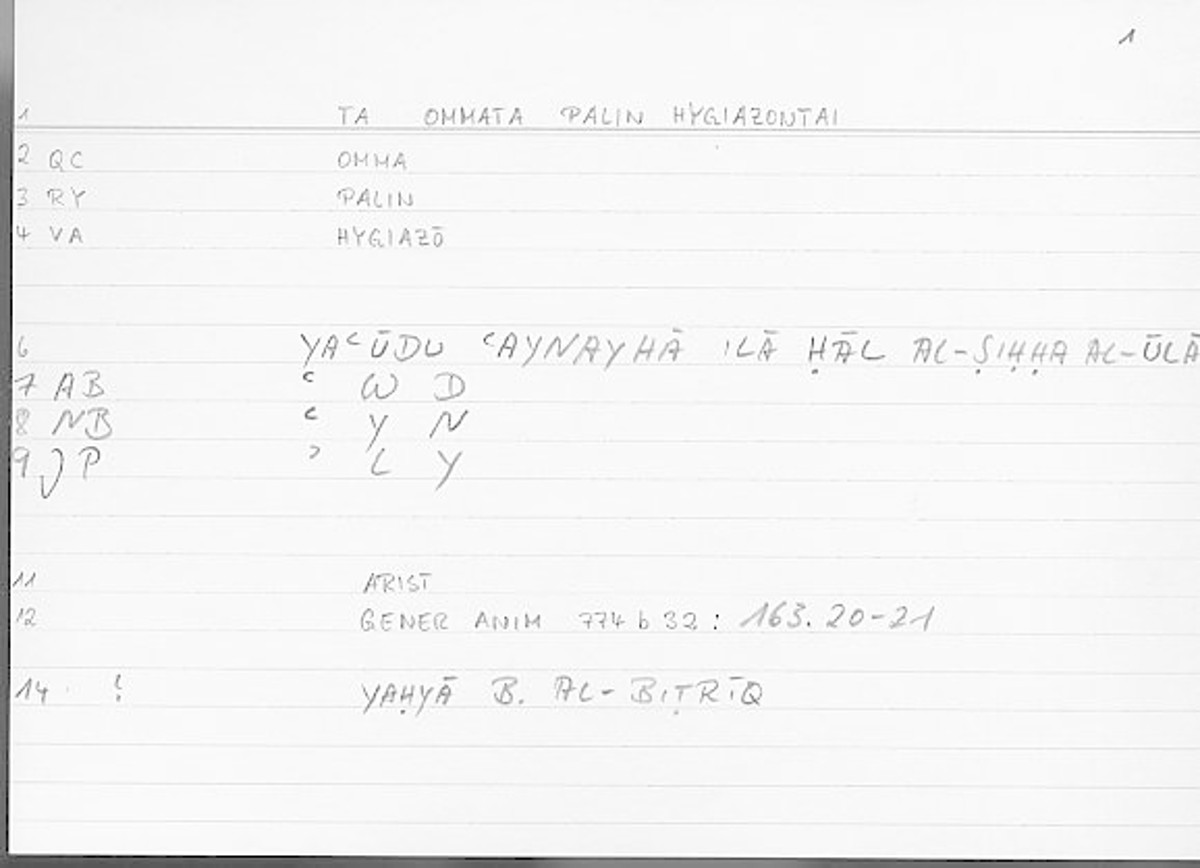 1
1 TA OMMATA PALIN HYGIAZONTAI
2 QC OMMA
3 RY PALIN
4 VA HYGIAZŌ
6 YAʿŪDU ʿAYNAYHĀ ILĀ ḤĀL AL-ṢIḤḤA AL-ŪLĀ
7 AB ʿ W D
8 NB ʿ Y N
9 JP ʾ L Y
11 ARIST
12 GENER ANIM 774 b 32 : 163. 20-21
14 ! YAḤYĀ B. AL-BIṬRĪQ